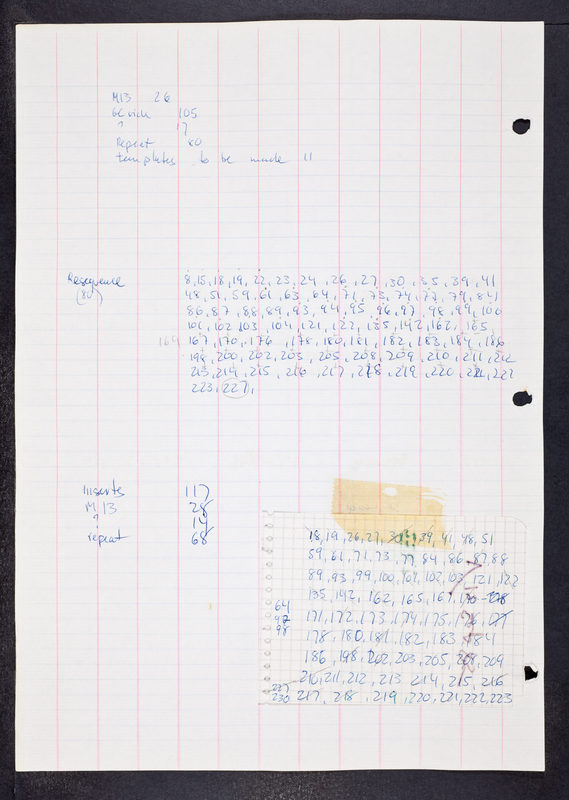 M13 26
105
? 17
Repeat 80
templates to be made 11
Resequence (80)
8, 15, 18, 19, 22, 23, 24, 26, 27, 30, 35, 39, 41
48, 51, 59, 61, 63, 64, 71, 73, 74, 77, 79, 84
86, 87, 88, 89, 93, 94, 95, 96, 97, 98, 99, 100
101, 102, 103, 104, 121, 122, 135, 142, 162, 165,
169 167, 170, 176, 178, 180, 181, 182, 183, 184, 186
198, 200, 202, 203, 205, 208, 209, 210, 211, 212
213, 214, 215, 216, 217, 218, 219, 220, 221, 222
223, 227,
Inserts 117
M13 28
? 14
repeat 68
18, 19, 26, 27, 39, 41, 48, 51
59, 61, 71, 73, 77, 84, 86, 87, 88
89, 93, 99, 100, 101, 102, 103, 121, 122
135, 142, 162, 165, 167, 170-178
64
171, 172, 173, 174, 175, 176, 177
97
98
178, 180, 181, 182, 183, 184
186, 198, 202, 203, 205, 208, 209
210, 211, 212, 213, 214, 215, 216
227
230 217, 218, 219, 220, 221, 222, 223